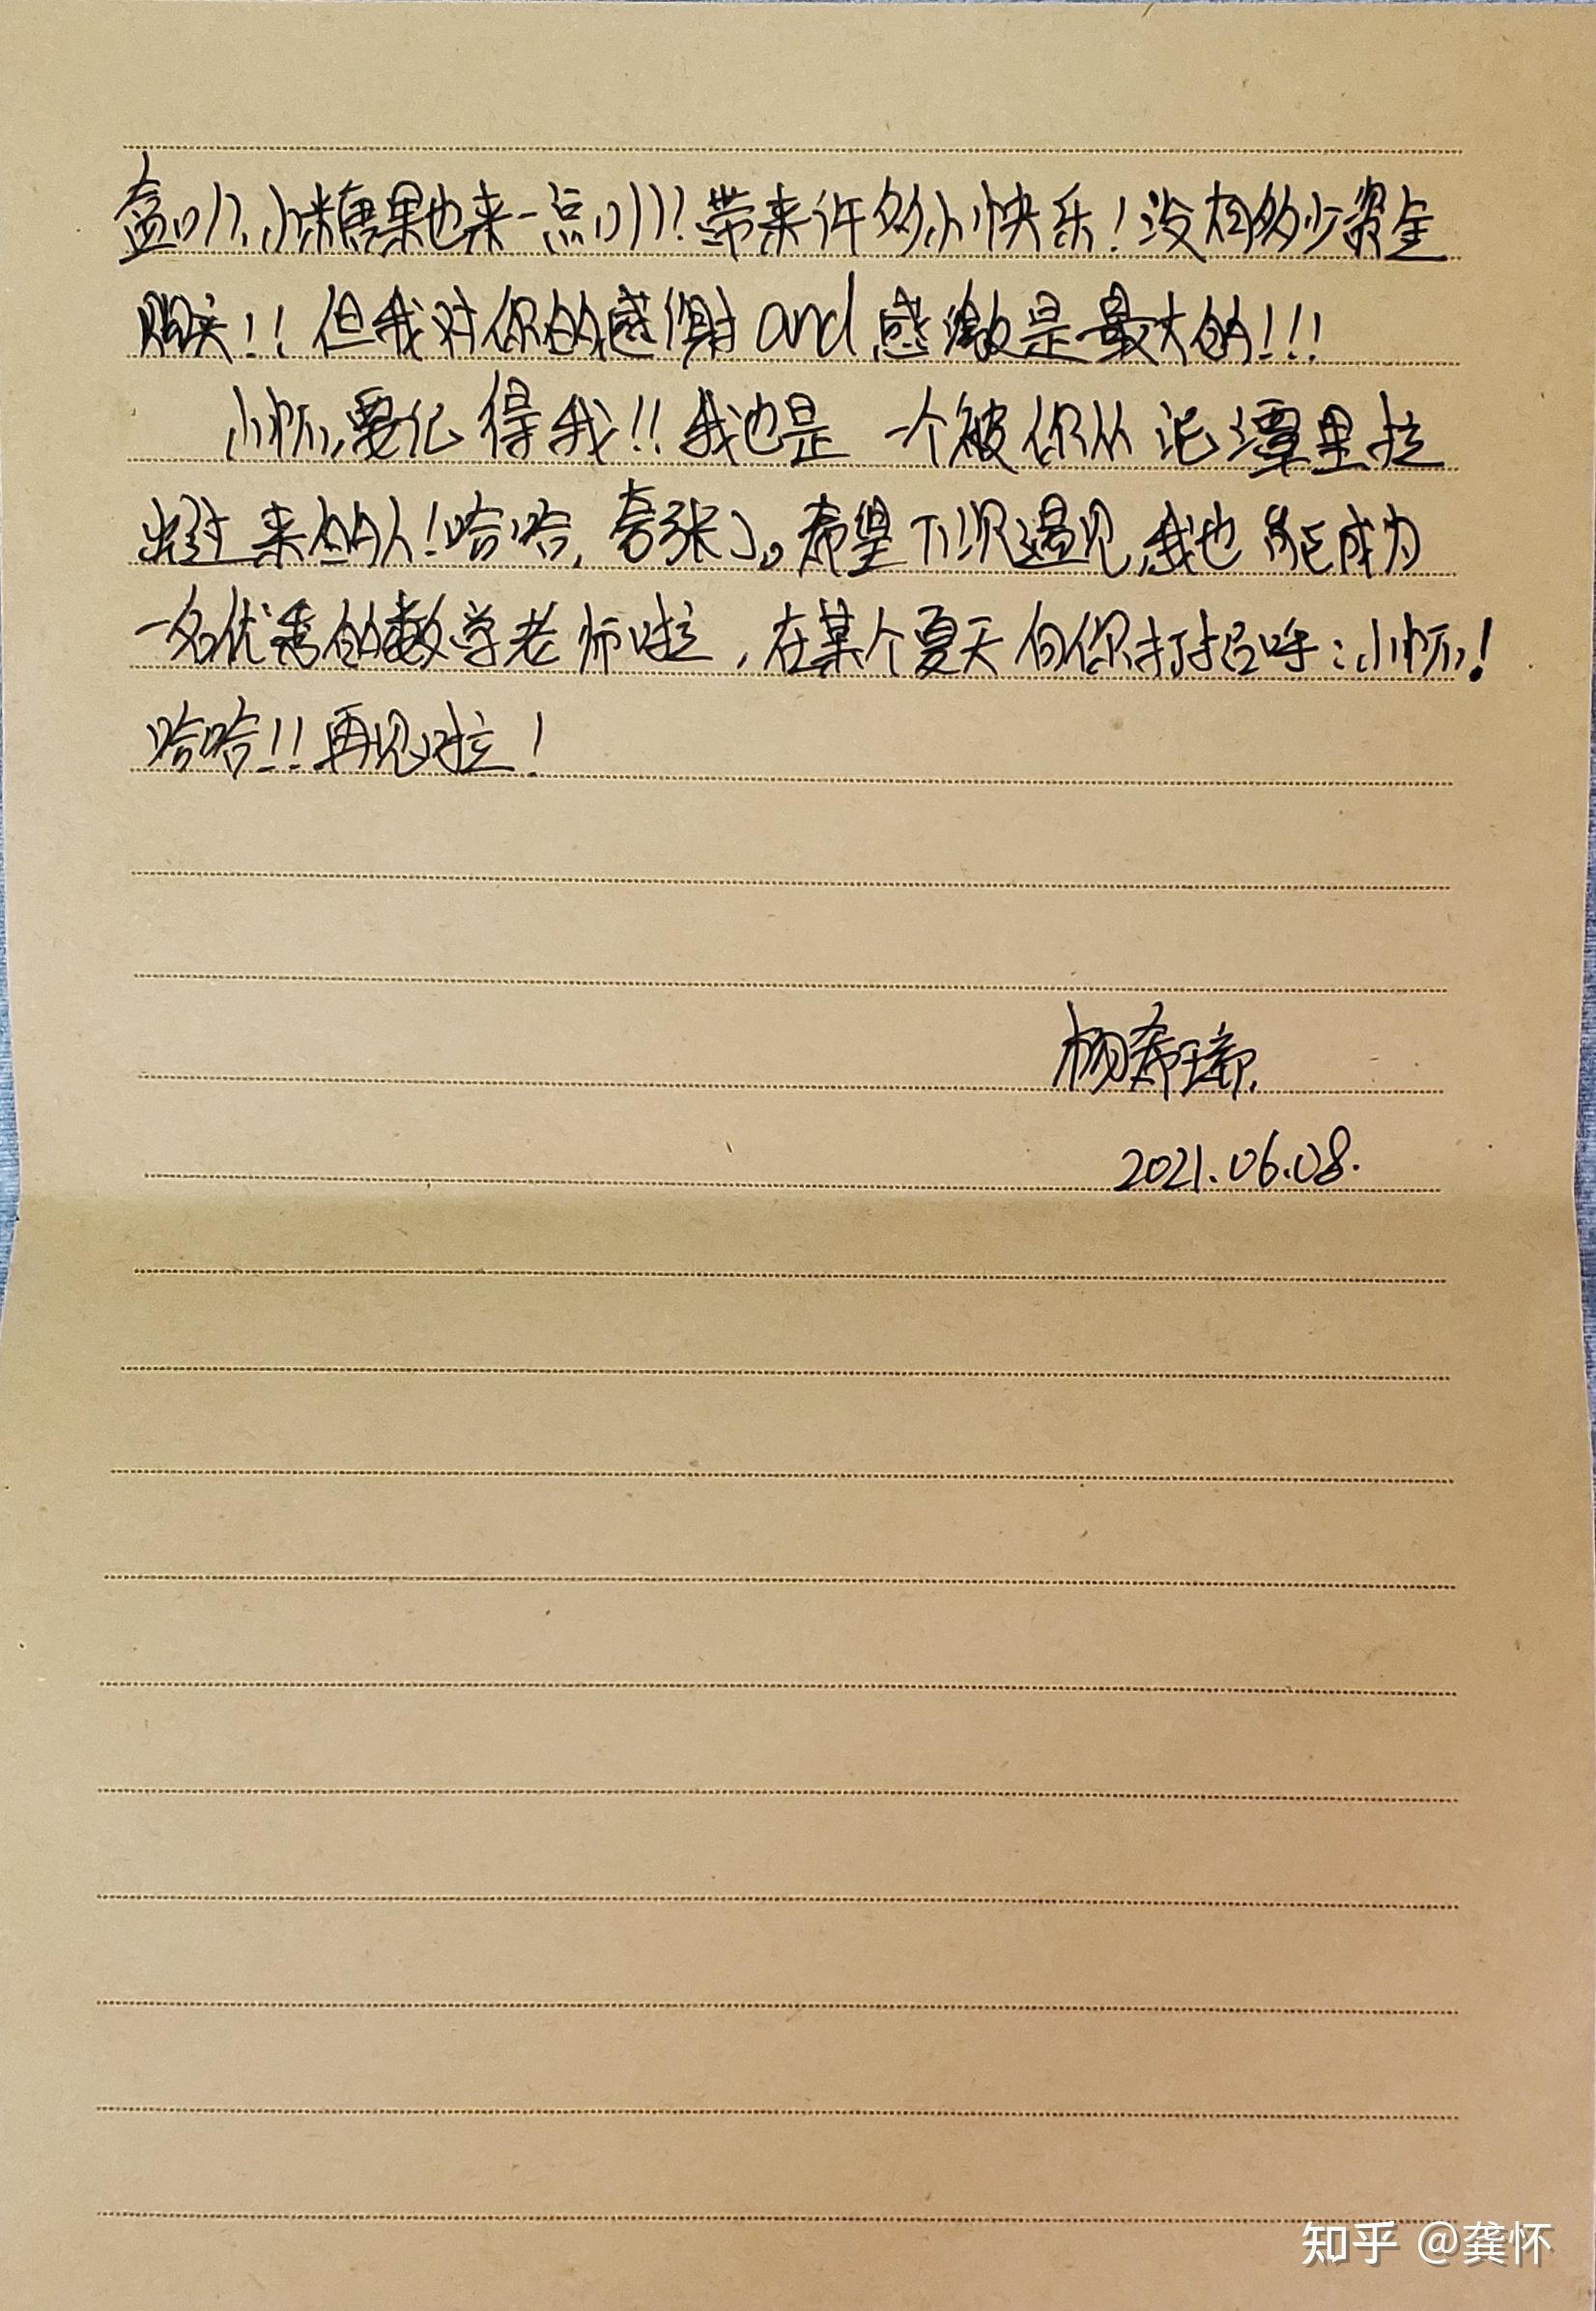 盒!!!小糖果也来一点!!!带来许多小快乐!没有多少资金
购买!!但我对你的感谢and感激是最大的!!!
小怀,要记得我!!我也是一个被你从泥潭里拉
出过来的人!哈哈,夸张了。希望下次遇见,我也能成为
一名优秀的数学老师啦,在某个夏天向你打招呼:小怀!
哈哈!!再见啦!
杨希
2021.06.08.
知乎 @龚怀